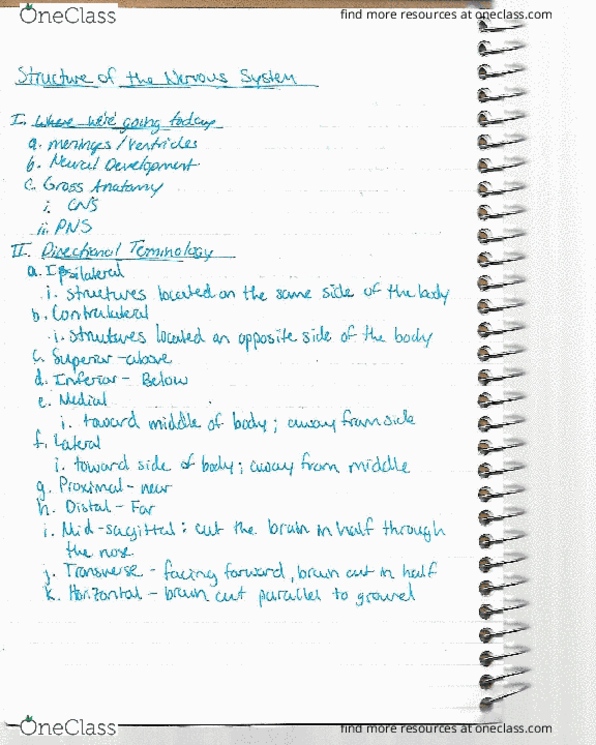 OneClass
find more resources at oneclass.com
Structure of the Nervous System
I. Where we're going today
a. meninges/ventricles
b. Neural Development
c. Gross Anatomy
i. CNS
ii. PNS
II. Directional Terminology
a. Ipsilateral
i. structures located on the same side of the body
b. Contralateral
i. structures located on opposite side of the body
c. Superior - above
d. Inferior - Below
e. Medial
i. toward middle of body; away from side
f. Lateral
i. toward side of body; away from middle
g. Proximal - near
h. Distal - Far
i. Mid-sagittal: cut the brain in half through
the nose
j. Transverse - facing forward, brain cut in half
k. Horizontal - brain cut parallel to ground
OneClass
find more resources at oneclass.com